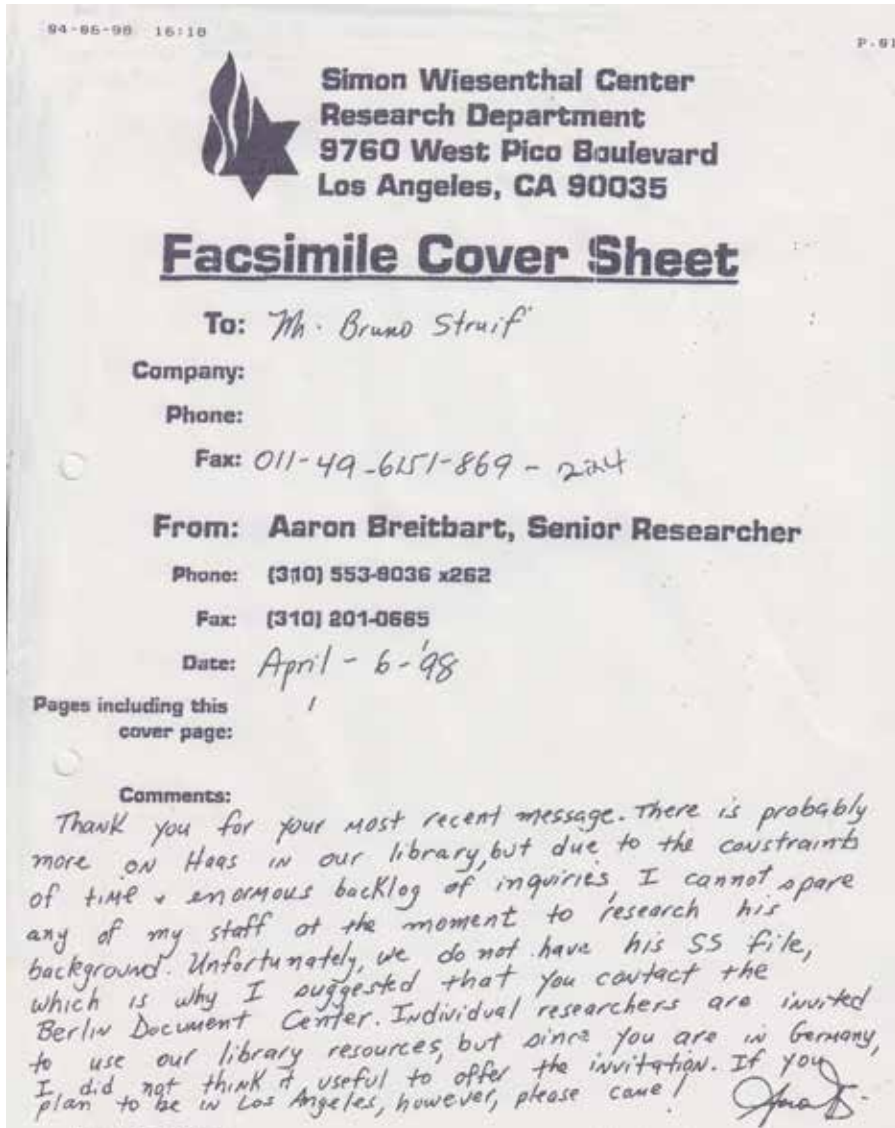 04-06-98 16:10
P.01
Simon Wiesenthal Center
Research Department
9760 West Pico Boulevard
Los Angeles, CA 90035
Facsimile Cover Sheet
To: Mr. Bruno Struif
Company:
Phone:
Fax: 011-49-6151-869-
From: Aaron Breitbart, Senior Researcher
Phone: (310) 553-9036 x262
Fax: (310) 201-0665
Date: April - 6 - '98
Pages including this 1
cover page:
Comments:
Thank you for your most recent message. There is probably
more on Haas in our library, but due to the constraints
of time & enormous backlog of inquiries, I cannot spare
any of my staff at the moment to research his
background. Unfortunately, we do not have his SS file,
which is why I suggested that you contact the
Berlin Document Center. Individual researchers are invited
to use our library resources, but since you are in Germany,
I did not think it useful to offer the invitation. If you
plan to be in Los Angeles, however, please come!